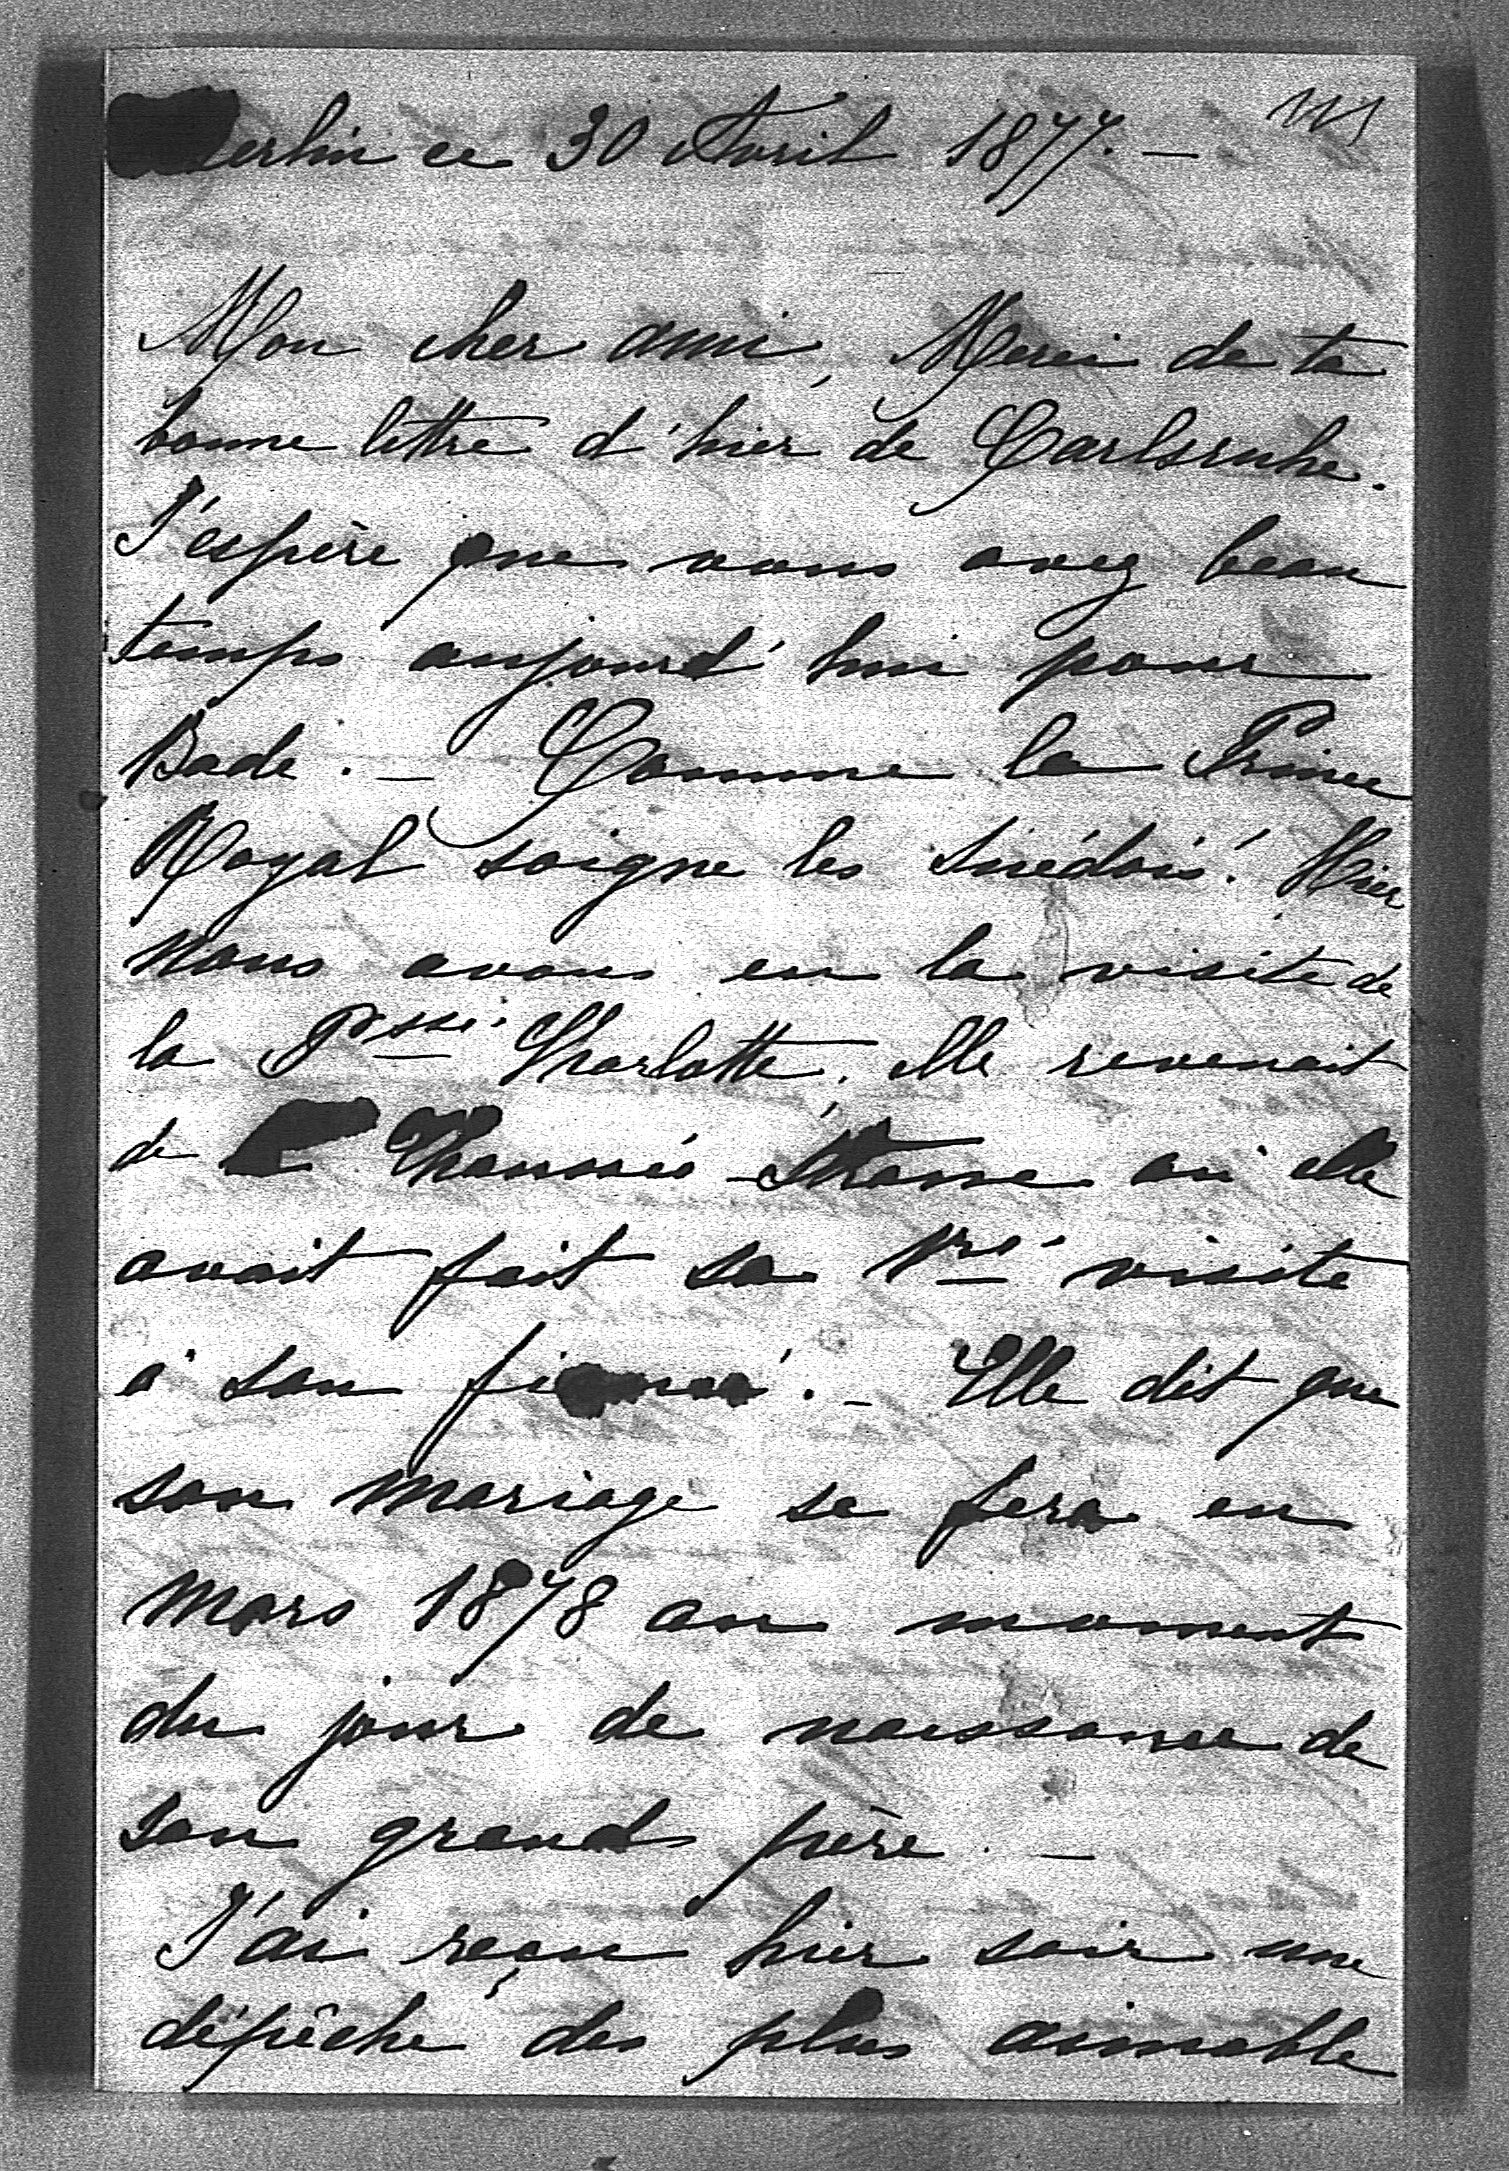 Berlin ce 30 Avril 1877. —
Mon cher ami, Merci de ta
bonne lettre d'hier de Carlsruhe.
J'espère que vous avez beau
temps aujourd'hui pour
Bade. — Comme le Prince
Royal soigne les Suédois! Hier
nous avons eu la visite de
la Psse Charlotte, elle revenait
de Chaussée-Strasse où elle
avait fait sa 1re visite
à son fiancé. — Elle dit que
son mariage se fera en
mars 1878 au moment
du jour de naissance de
son grand père. —
J'ai reçu hier soir une
dépêche des plus aimable